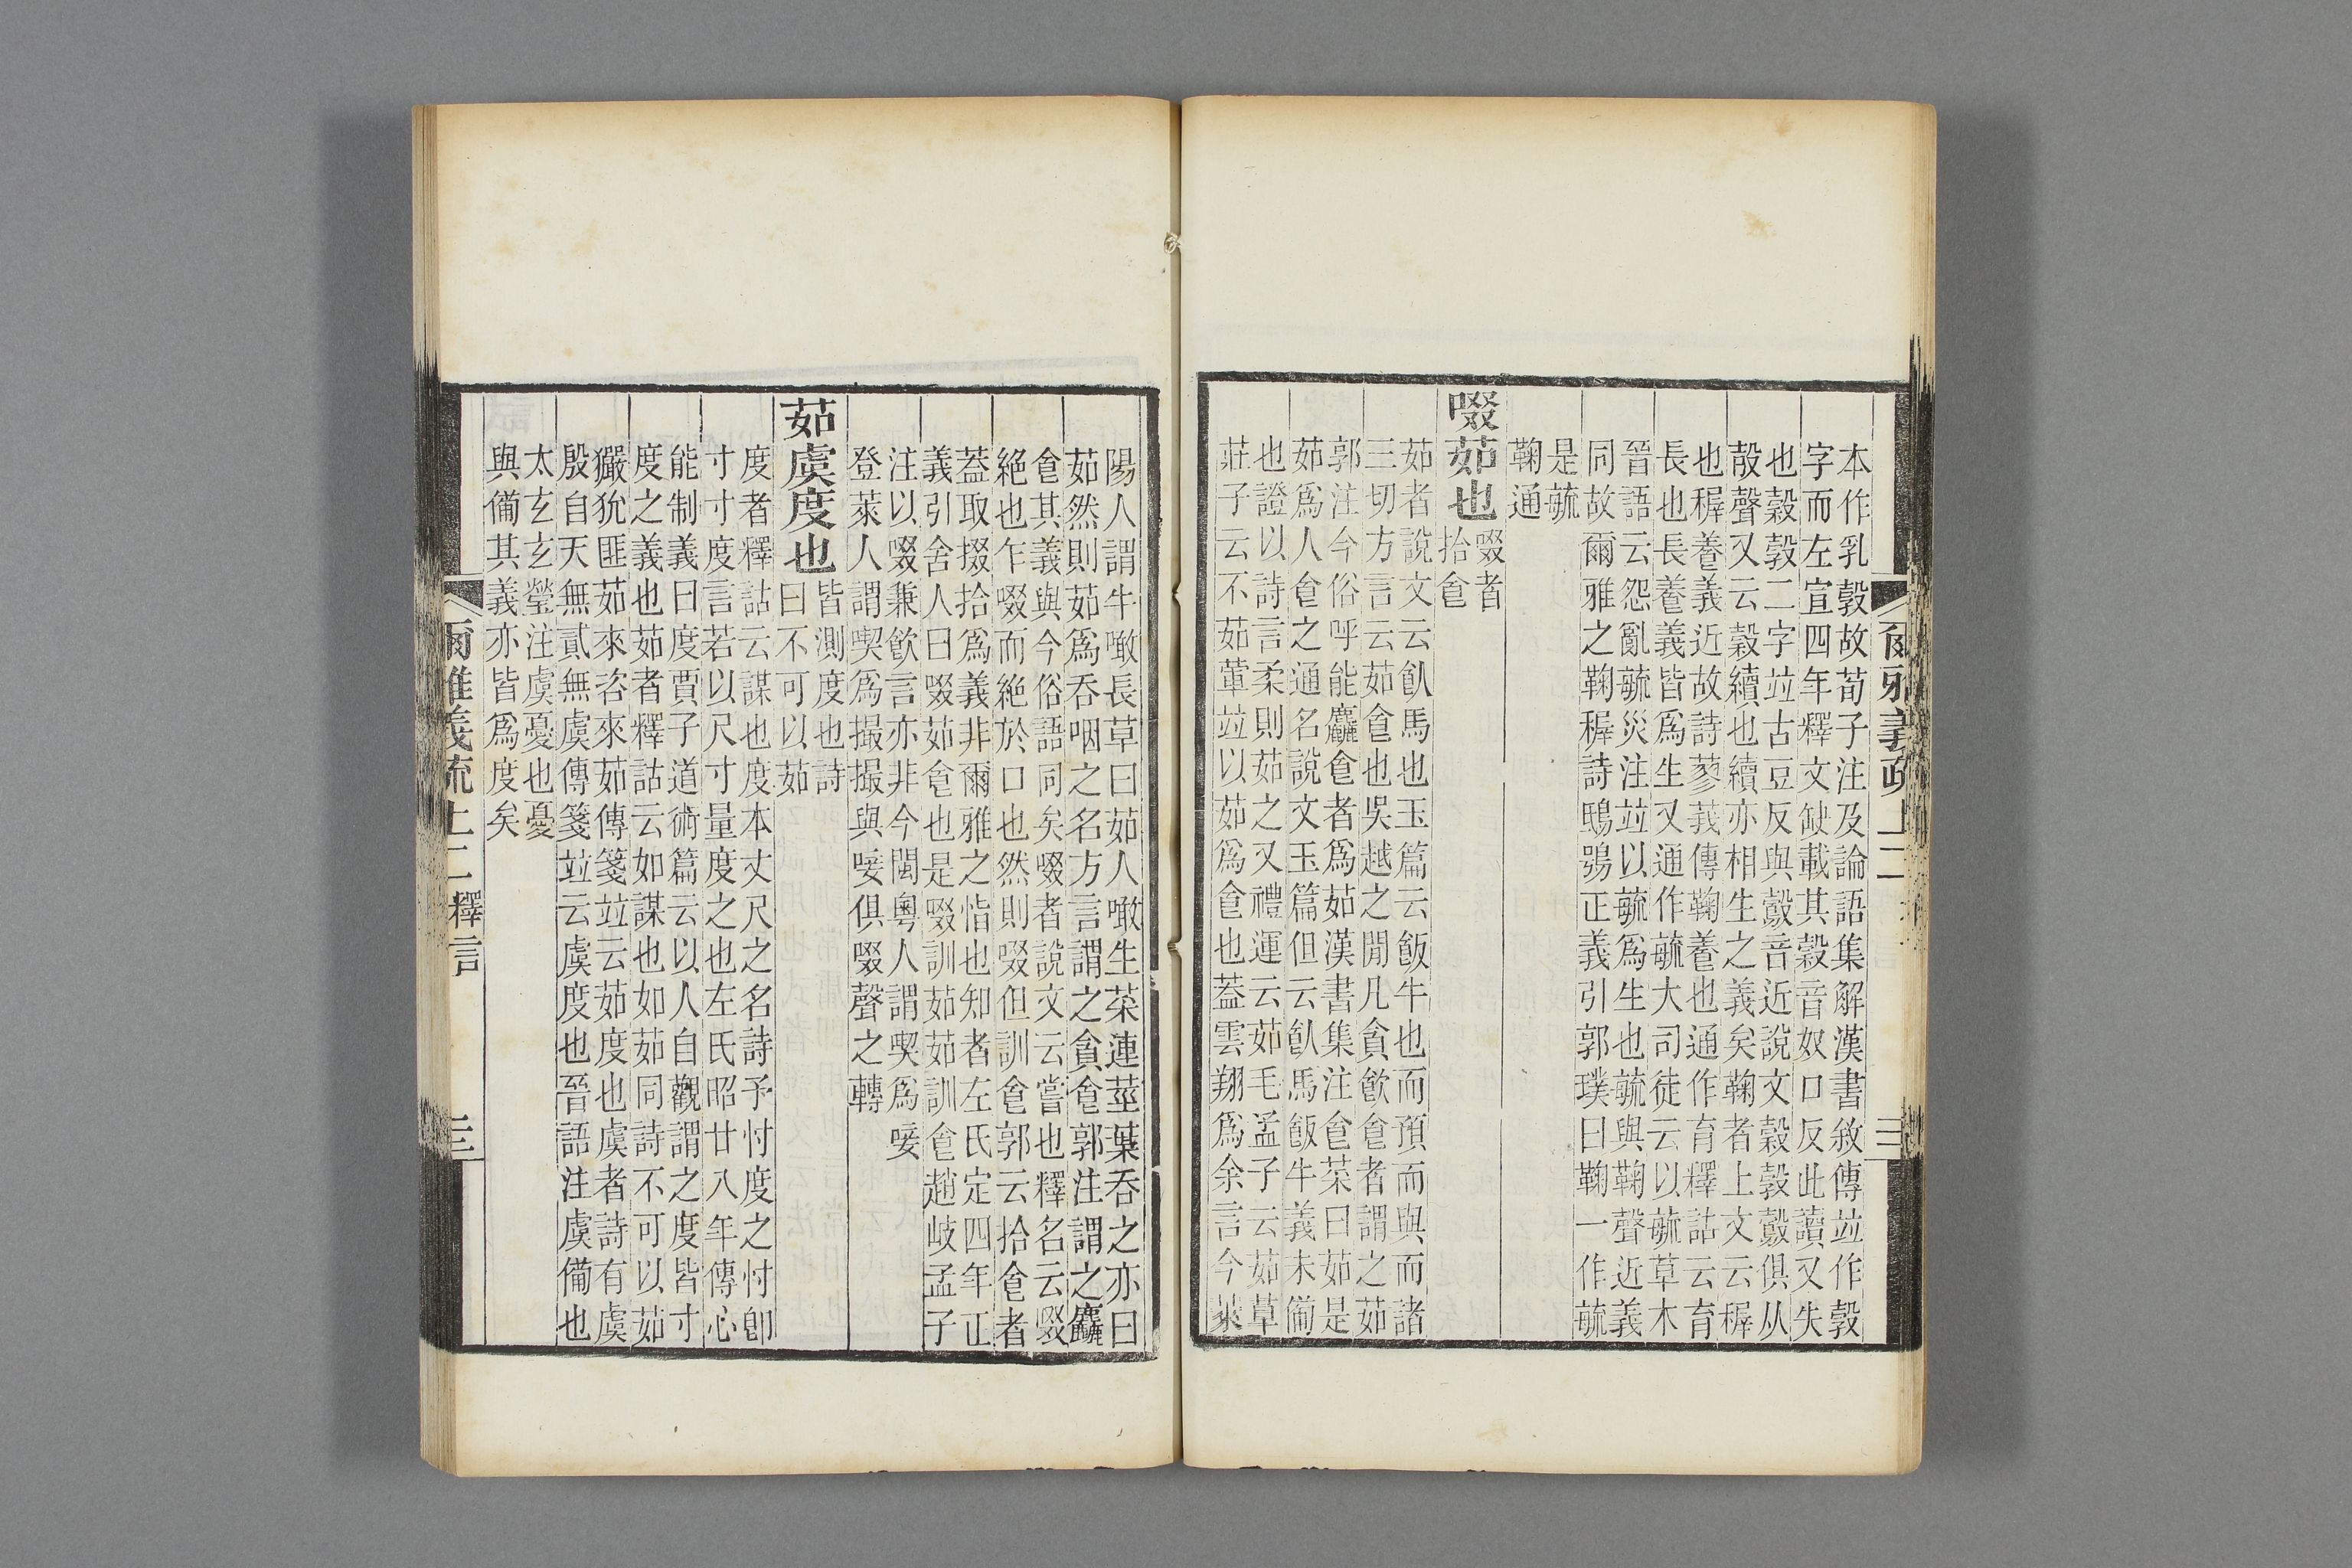 爾雅義疏上二
本作乳㝅故荀子注及論語集解漢書敘傳竝作㝅
字而左宣四年釋文缺載其穀音奴口反此讀又失
也穀㝅二字竝古豆反與鷇音近說文穀㝅鷇俱从
㱿聲又云穀續也續亦相生之義矣鞠者上文云穉
也穉養義近故詩蓼莪傳鞠養也通作育釋詁云育
長也長養義皆爲生又通作毓大司徒云以毓草木
晉語云怨亂毓災注竝以毓爲生也毓與鞠聲近義
同故爾雅之鞠穉詩鴟鴞正義引郭璞曰鞠一作毓
是毓
鞠通
啜茹也
啜者
拾食
茹者說文云飤馬也玉篇云飯牛也而預而與而諸
三切方言云茹食也吳越之閒凡貪飮食者謂之茹
郭注今俗呼能麤食者爲茹漢書集注食菜曰茹是
茹爲人食之通名說文玉篇但云飤馬飯牛義未僃
也證以詩言柔則茹之又禮運云茹毛孟子云茹草
莊子云不茹葷竝以茹爲食也葢雲翔爲余言今萊
陽人謂牛噉長草曰茹人噉生菜連莖葉吞之亦曰
茹然則茹爲吞咽之名方言謂之貪食郭注謂之麤
食其義與今俗語同矣啜者說文云嘗也釋名云啜
絕也乍啜而絕於口也然則啜但訓食郭云拾食者
葢取掇拾爲義非爾雅之恉也知者左氏定四年正
義引舍人曰啜茹食也是啜訓茹茹訓食趙岐孟子
注以啜兼飮言亦非今閩粵人謂喫爲唼
登萊人謂喫爲撮撮與唼俱啜聲之轉
茹虞度也
皆測度也詩
曰不可以茹
度者釋詁云謀也度本丈尺之名詩予忖度之忖卽
寸寸度言若以尺寸量度之也左氏昭廿八年傳心
能制義曰度賈子道術篇云以人自觀謂之度皆寸
度之義也茹者釋詁云如謀也如茹同詩不可以茹
玁狁匪茹來咨來茹傳箋竝云茹度也虞者詩有虞
殷自天無貳無虞傳箋竝云虞度也晉語注虞僃也
太玄玄瑩注虞憂也憂
與僃其義亦皆爲度矣
爾雅義疏上二 釋言